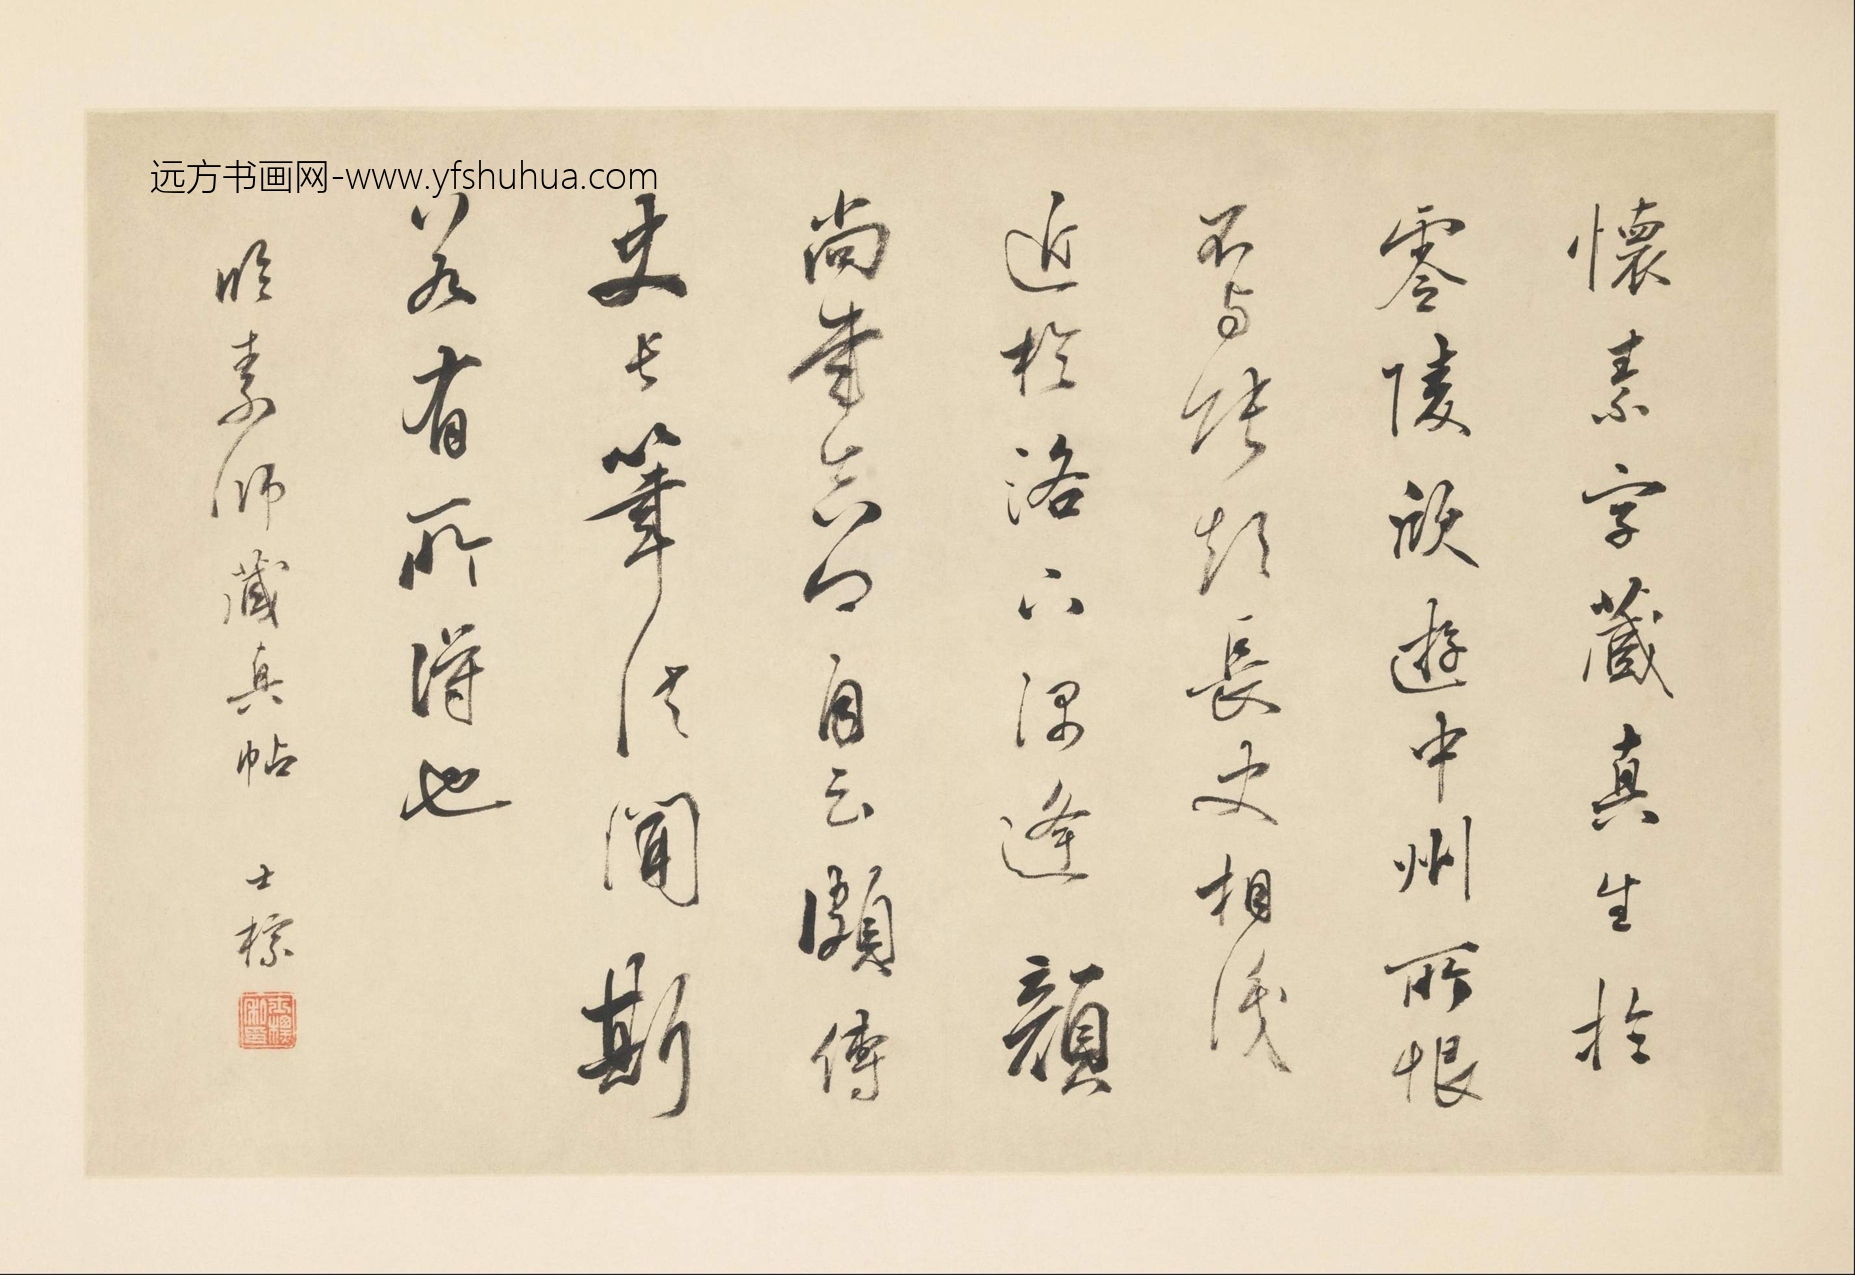 远方书画网-www.yfshuhua.com
懷素字藏真生於
零陵遊中州所恨
不与張顛長史相識
近於洛下偶逢顏
尚書真卿自云頗傳
史長筆法聞斯
若有所得也
臨素師藏真帖 士標
士標私印